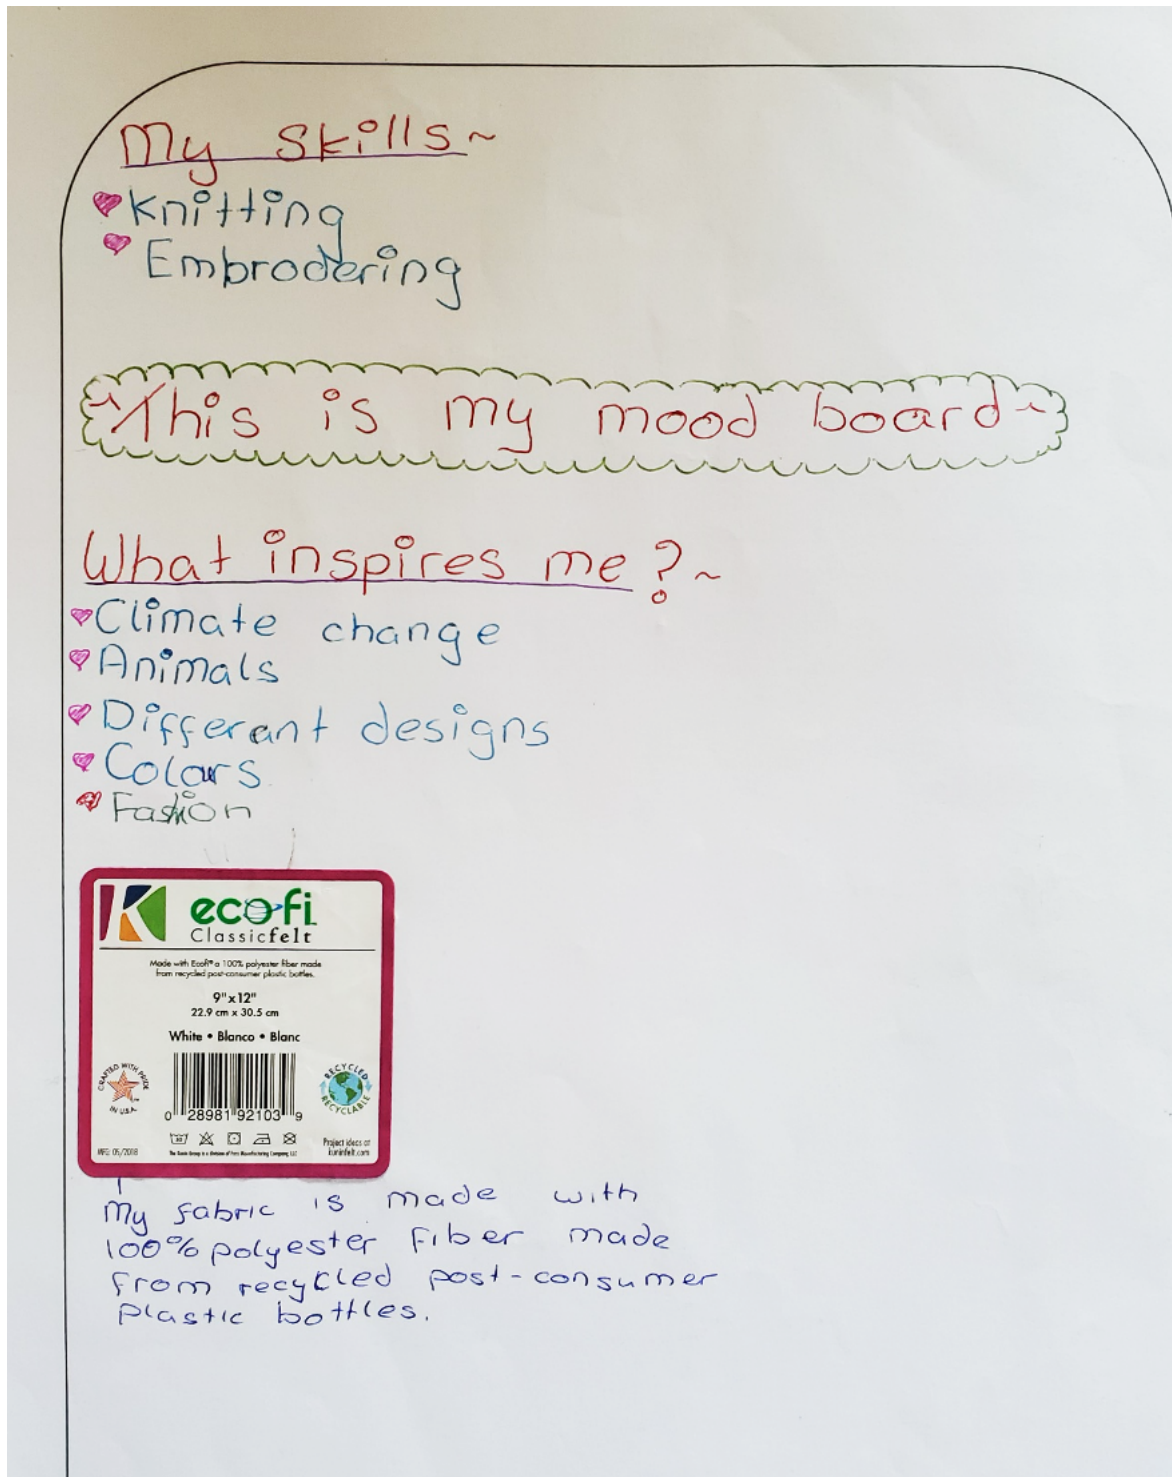 My Skills~
Knitting
Embrodering
~This is my mood board~
What inspires me?~
Climate change
Animals
Different designs
Colors
Fashion
K
ecofi
Classicfelt
Made with Ecofi® a 100% polyester fiber made
from recycled post-consumer plastic bottles.
9" x 12"
22.9 cm x 30.5 cm
White • Blanco • Blanc
CRAFTED WITH PRIDE
IN U.S.A.
RECYCLED
RECYCLABLE
0 28981 92103 9
MFG: 05/2018
The Kunin Group is a division of Foss Manufacturing Company, LLC
Project ideas at
kuninfelt.com
My fabric is made with
100% polyester fiber made
from recycled post-consumer
plastic bottles.